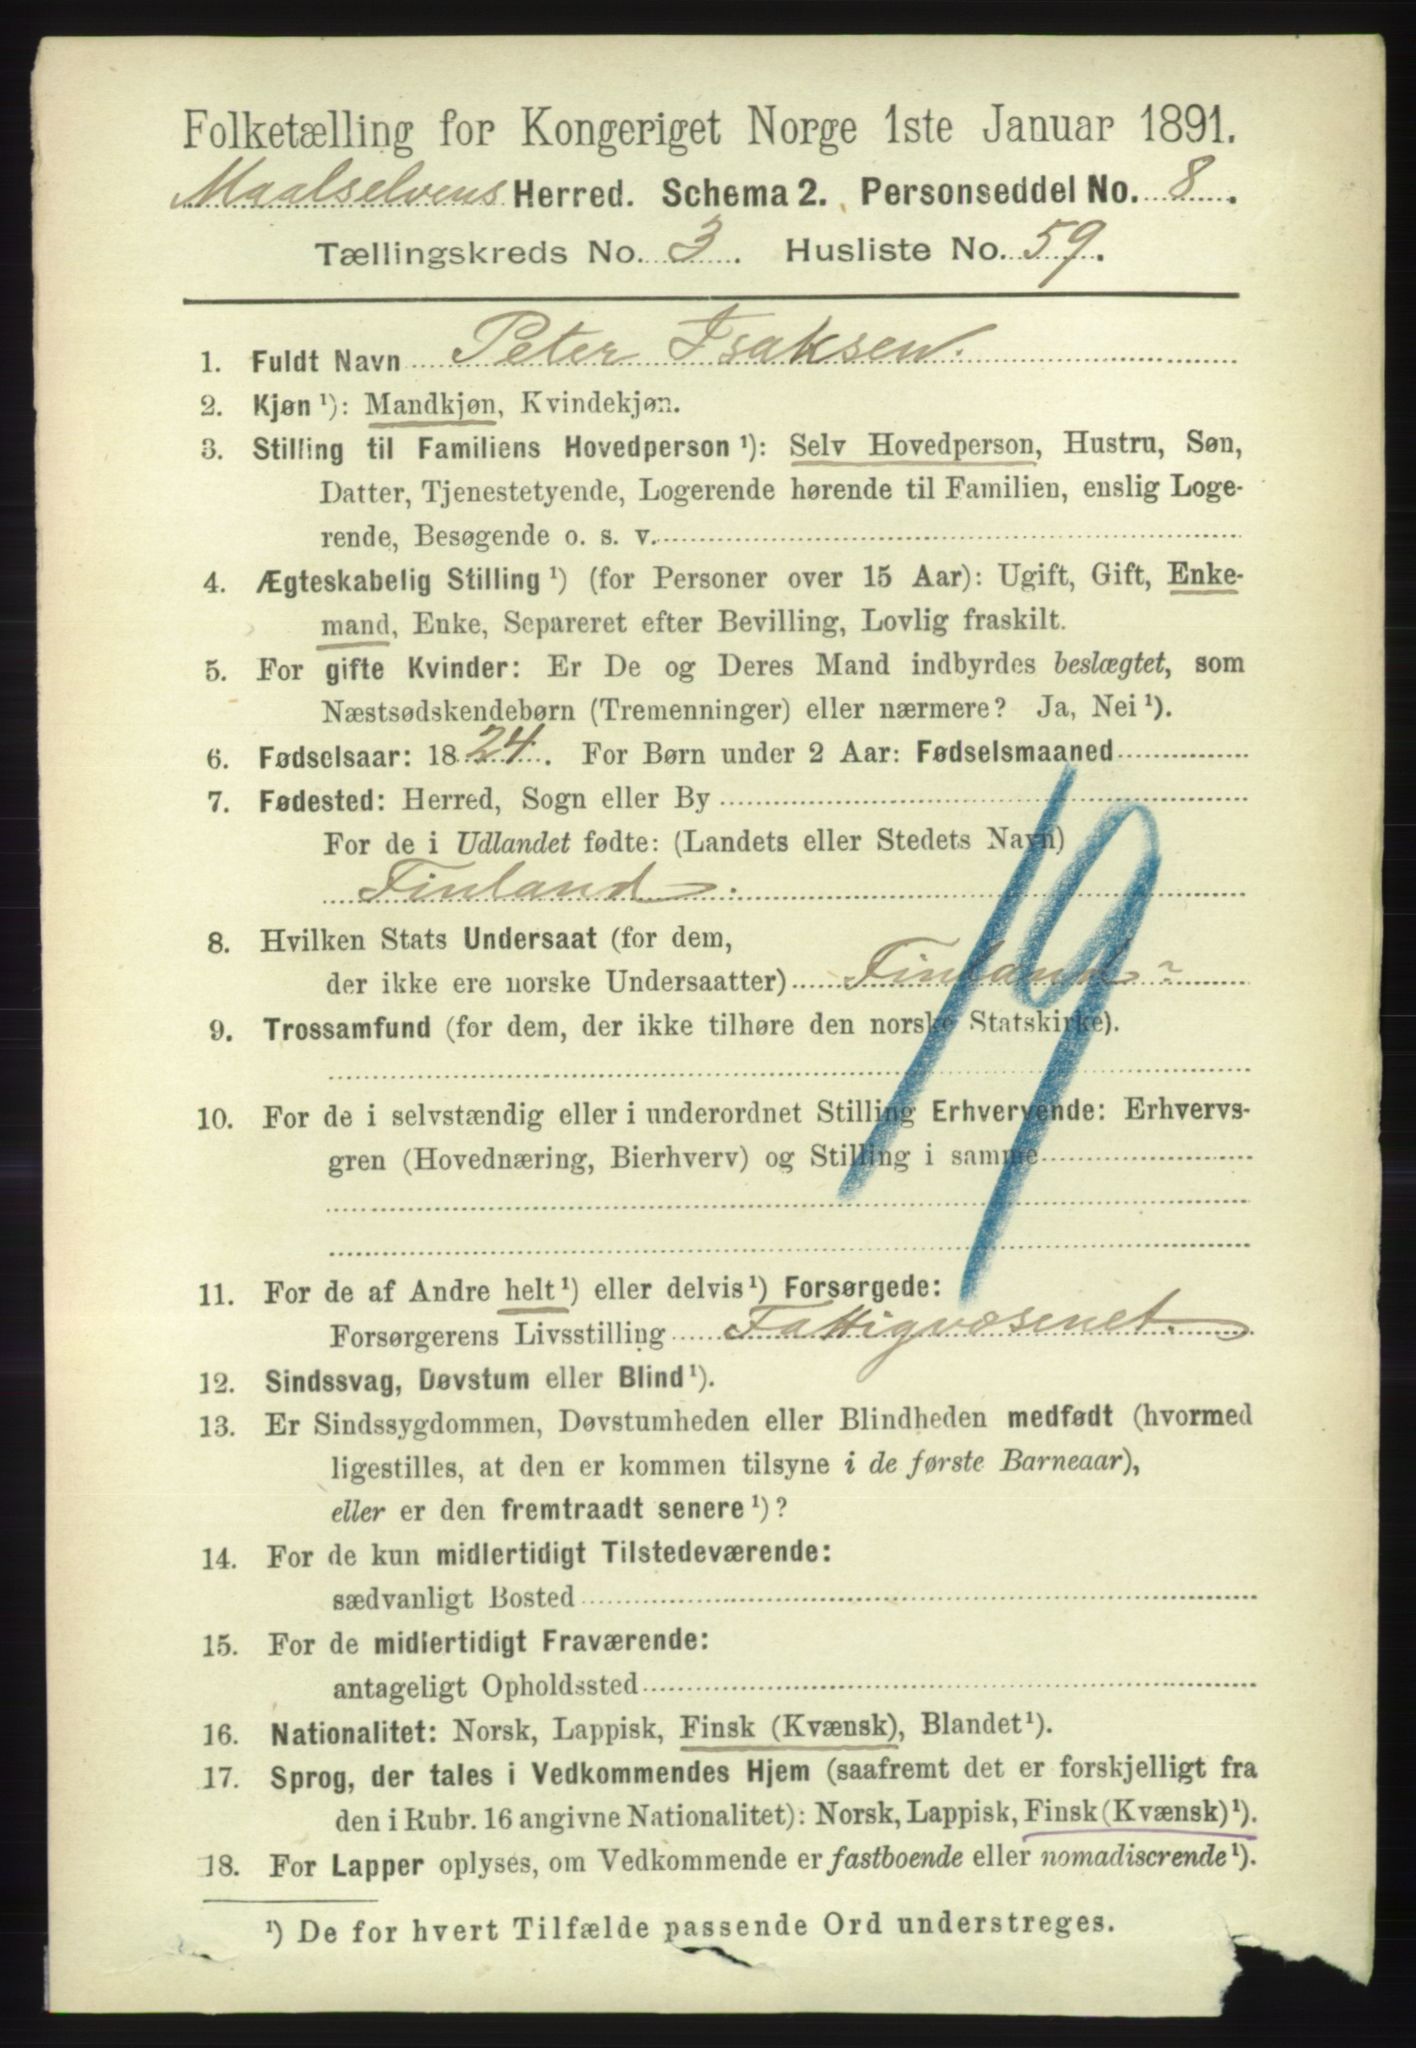 Folketælling for Kongeriget Norge 1ste Januar 1891.
Maalselvens Herred. Schema 2. Personseddel No. 8.
Tællingskreds No. 3. Husliste No. 59.
1. Fuldt Navn Peter Isaksen.
2. Kjøn ¹): Mandkjøn, Kvindekjøn.
3. Stilling til Familiens Hovedperson ¹): Selv Hovedperson, Hustru, Søn,
Datter, Tjenestetyende, Logerende hørende til Familien, enslig Loge-
rende, Besøgende o. s. v.
4. Ægteskabelig Stilling ¹) (for Personer over 15 Aar): Ugift, Gift, Enke-
mand, Enke, Separeret efter Bevilling, Lovlig fraskilt.
5. For gifte Kvinder: Er De og Deres Mand indbyrdes beslægtet, som
Næstsødskendebørn (Tremenninger) eller nærmere? Ja, Nei ¹).
6. Fødselsaar: 1824. For Børn under 2 Aar: Fødselsmaaned
7. Fødested: Herred, Sogn eller By
For de i Udlandet fødte: (Landets eller Stedets Navn)
Finland.
8. Hvilken Stats Undersaat (for dem,
der ikke ere norske Undersaatter) Finland
9. Trossamfund (for dem, der ikke tilhøre den norske Statskirke).
19
10. For de i selvstændig eller i underordnet Stilling Erhvervende: Erhvervs-
gren (Hovednæring, Bierhverv) og Stilling i samme
11. For de af Andre helt ¹) eller delvis ¹) Forsørgede:
Forsørgerens Livsstilling Fattigvæsenet.
12. Sindssvag, Døvstum eller Blind ¹).
13. Er Sindssygdommen, Døvstumheden eller Blindheden medfødt (hvormed
ligestilles, at den er kommen tilsyne i de første Barneaar),
eller er den fremtraadt senere ¹)?
14. For de kun midlertidigt Tilstedeværende:
sædvanligt Bosted
15. For de midlertidigt Fraværende:
antageligt Opholdssted
16. Nationalitet: Norsk, Lappisk, Finsk (Kvænsk), Blandet ¹).
17. Sprog, der tales i Vedkommendes Hjem (saafremt det er forskjelligt fra
den i Rubr. 16 angivne Nationalitet): Norsk, Lappisk, Finsk (Kvænsk) ¹).
18. For Lapper oplyses, om Vedkommende er fastboende eller nomadiserende ¹).
¹) De for hvert Tilfælde passende Ord understreges.